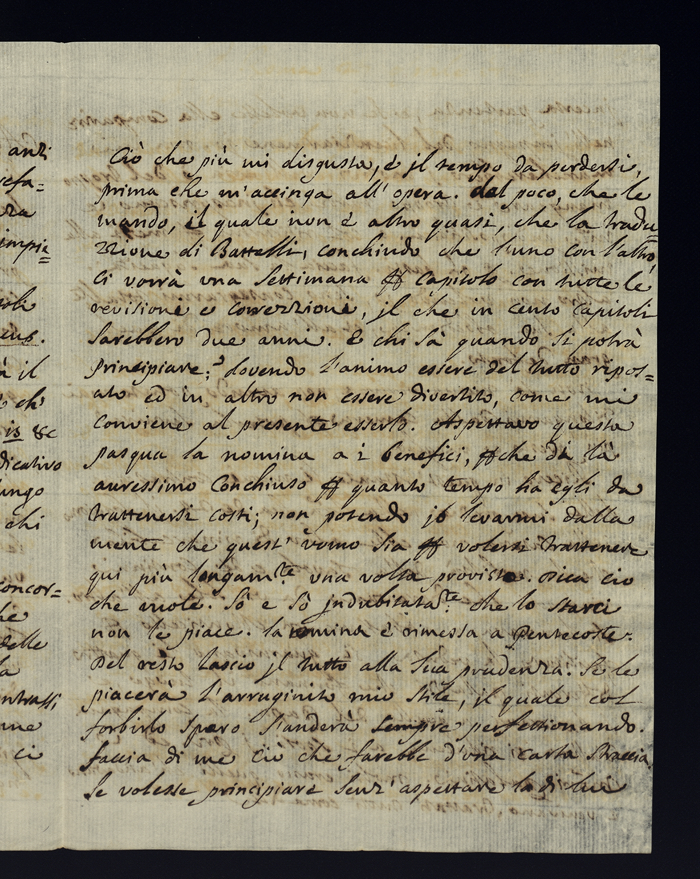 anzi
refa=
za
impie=
ch'
is &c
dicativo
lungo
chi
concor=
delle
la
ntrassi
me
ci
Ciò che più mi disgusta, è jl tempo da perdersi,
prima che m'accinga all'opera. dal poco, che le
mando, il quale non è altro quasi, che la tradu
zzione di Battelli, conchiudo che l'uno con l'altro,
ci vorrà una Settimana per Capitolo con tutte le
revisioni e correzzioni, jl che in cento Capitoli
sarebbero due anni. E chi sà quando si potrà
principiare; dovendo l'animo essere del tutto ripos=
ato ed in altro non essere divertito, come mi
conviene al presente esserlo. Aspettavo questa
pasqua la nomina a i benefici, perche da là
auressimo Conchiuso per quanto tempo ha egli da
trattenersi costì; non potendo jo levarmi dalla
mente che quest'uomo sia per volersi trattenere
qui più longam.te una volta provisto. dica ciò
che vuole. Sò e sò jndubitata.te che lo starci
non le piace. la nomina è rimessa a Pentecoste.
Del resto lascio jl tutto alla Sua prudenza. Se le
piacerà l'arruginito mio stile, jl quale col
forbirlo spero s'anderà sempre perfettionando.
faccia di me ciò che farebbe d'una carta straccia.
Se volesse principiare senz'aspettare la di lui